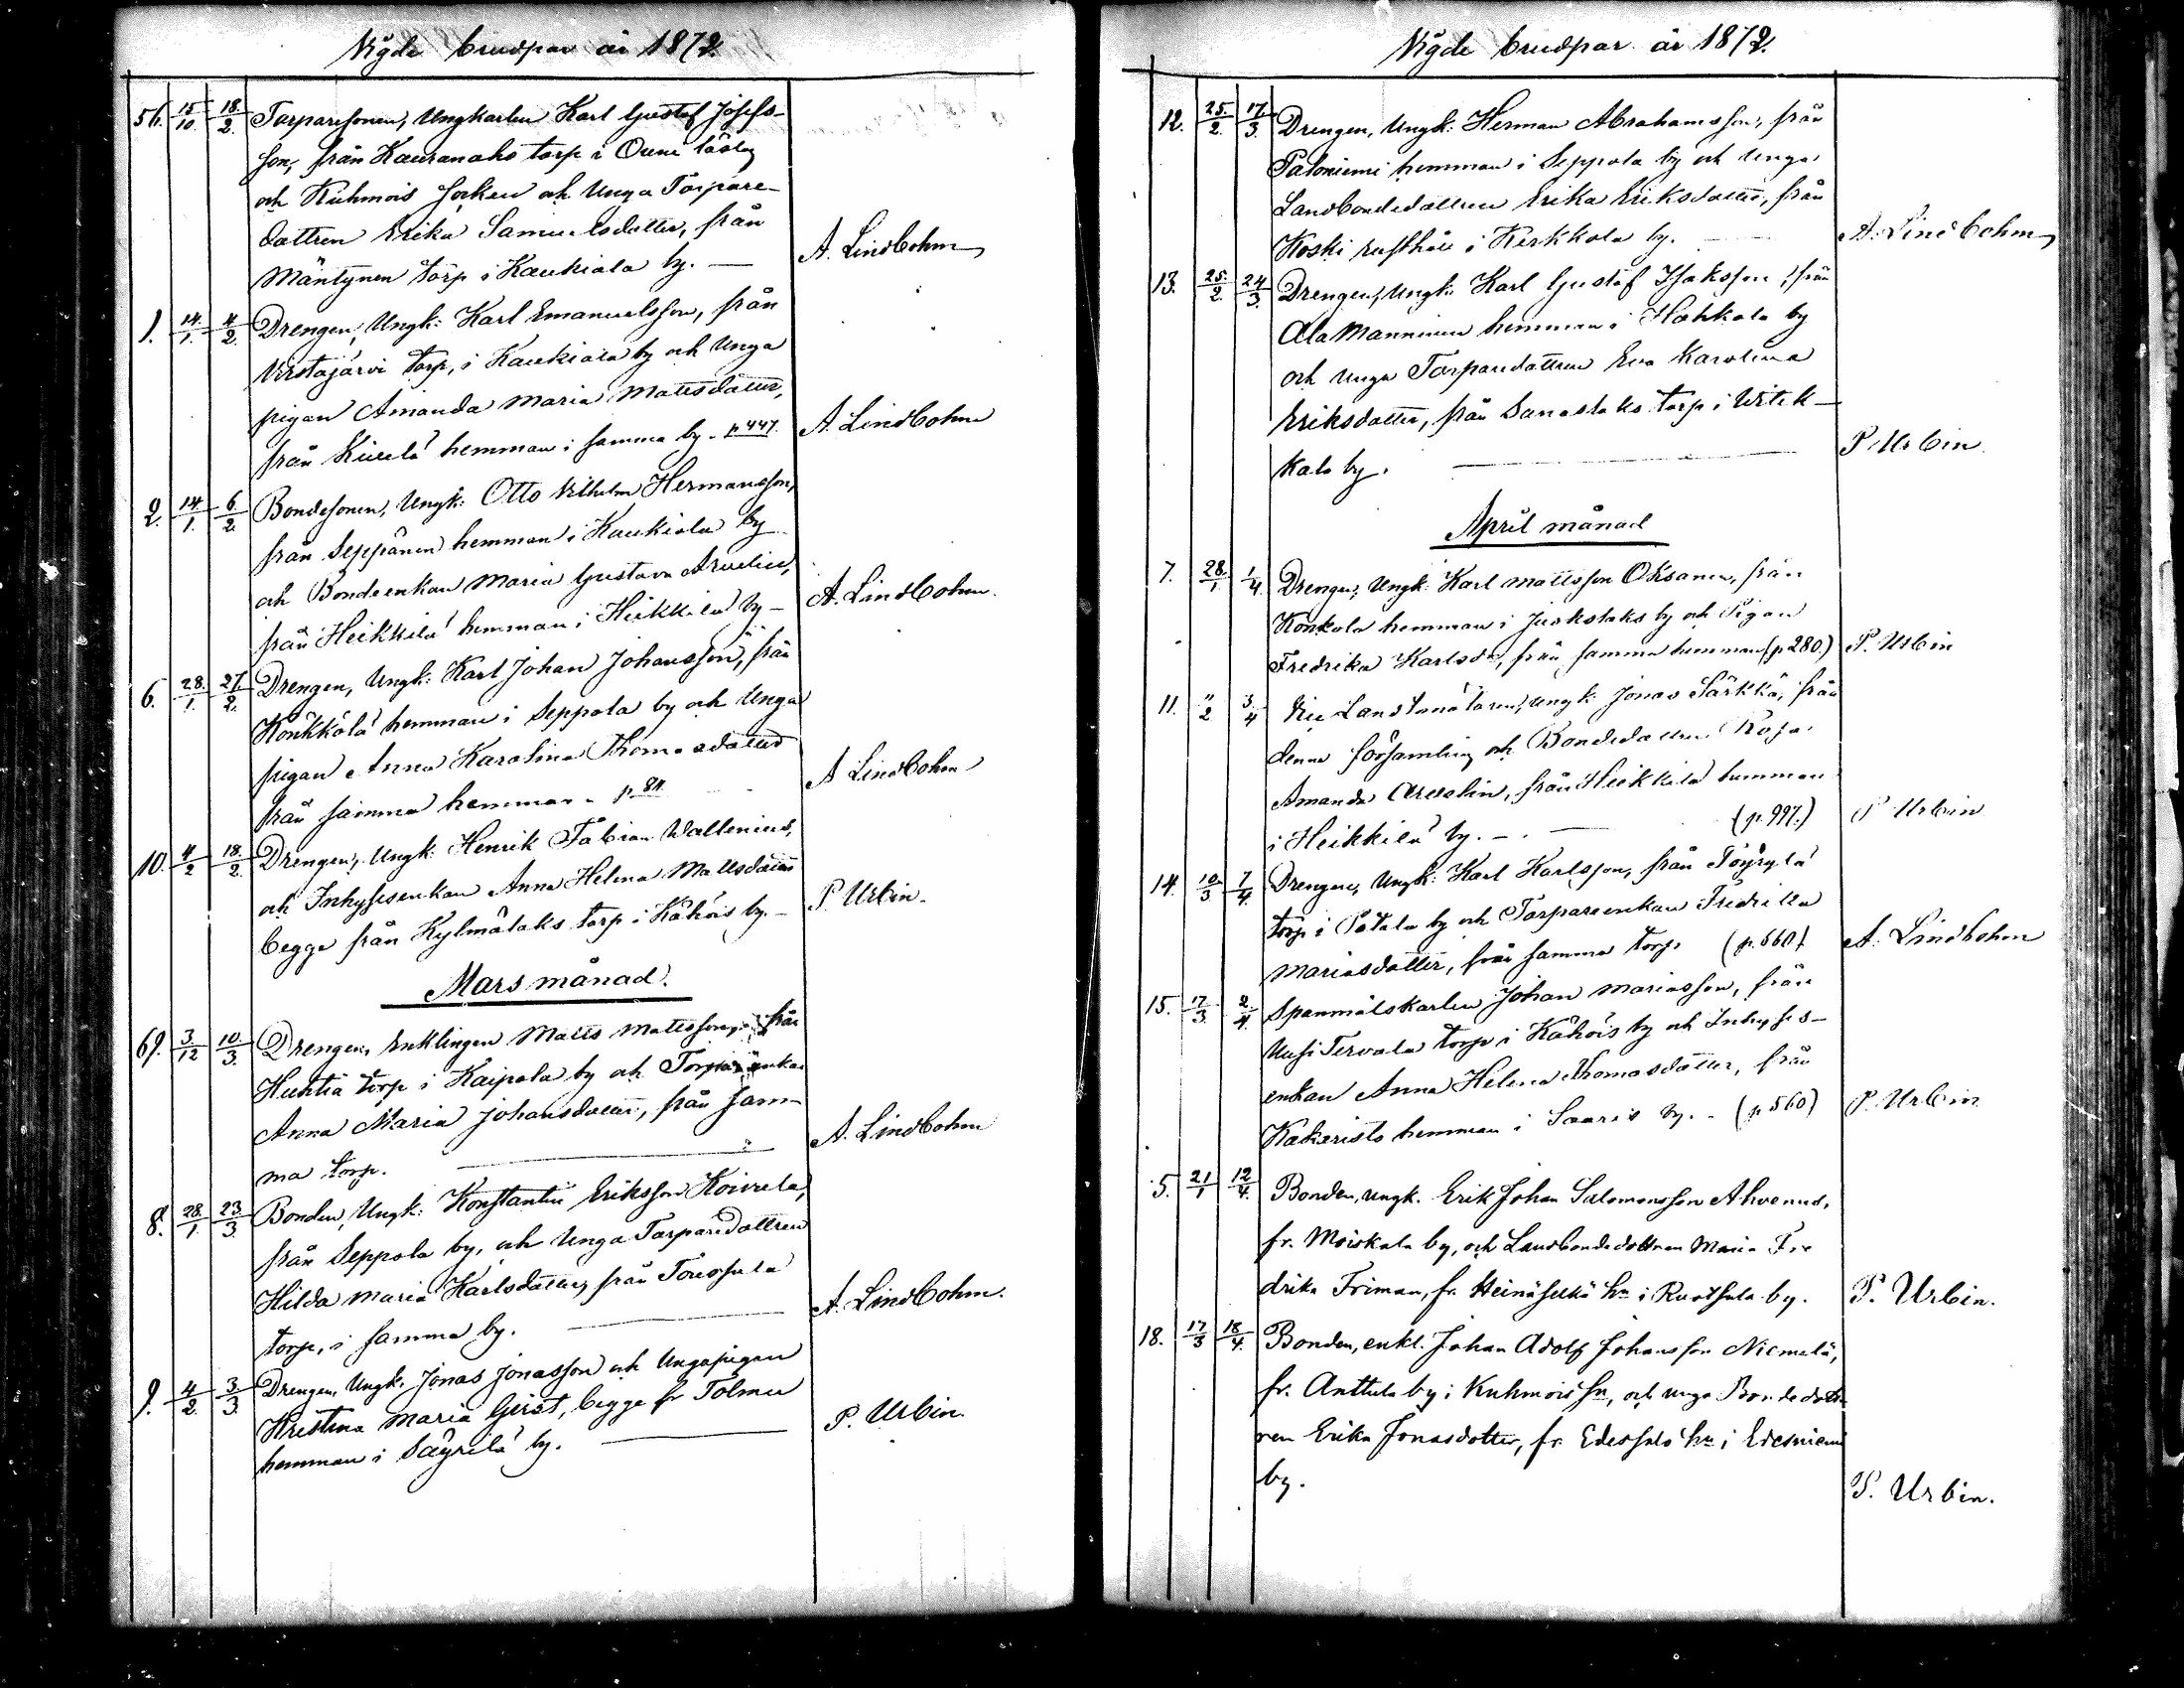 Vigde brudpar år 1872.
56. 15/10. 18./2. Torparesonen, Ungkarlen Karl Gustaf Josefs-
son, från Kauranaho torp i Orine
och Kuhmois socken och Unga Torpare-
dattren Erika Samuelsdotter, från
Mäntynen torp i Kaukiala by. — A. Lindbohm
1. 14./1. 4/2. Drengen, Ungk: Karl Emanuelsson, från
Virstajärvi torp, i Kaukiala by och Unga
pigan Amanda Maria Mattsdatter,
från hemman i samma by. p 447. A. Lindbohm
2. 14/1. 6/2. Bondesonen, Ungk: Otto Vilhelm Hermansson,
från Seppänen hemman i Kaukiala by
och Bondeenkan Maria Gustava Arvelin,
från Heikkilä hemman i Heikkilä by — A. Lindbohm.
6. 28./1. 27./2. Drengen, Ungk: Karl Johan Johansson, från
Könkkölä hemman i Seppola by och Unga
pigan Anna Karolina Thomasdatter
från samma hemman. p 811 A Lindbohm
10. 4/2 18./2. Drengen, Ungk: Henrik Fabian Wallenius,
och Inhysesenkan Anna Helena Mattsdatter
begge från Kylmälaks torp i Kähöis by. — P. Urbin.
Mars månad.
69. 3/12 10./3. Drengen, Enklingen Matts Mattsson, från
Huhtia torp i Kaipola by och Torpar enkan
Anna Maria Johansdatter, från sam-
ma torp. — A. Lindbohm
8. 28./1. 23/3. Bonden, Ungk: Konstantin Eriksson Koivula,
från Seppola by, och Unga Torparedattren
Hilda Maria Karlsdatter, från Torussula
torp, i samma by. — A. Lindbohm.
9. 4/2. 3/3. Drengen, Ungk. Jonas Jonasson och Ungapigan
Kristina Maria Geist, begge fr Tolmu
hemman i Säyrilä by. — P. Urbin.
Vigde brudpar år 1872.
12. 25./2. 17/3. Drengen, Ungk: Herman Abrahamsson, från
Patoniemi hemman i Seppola by och Unga
Landbondedattren Erika Eriksdatter, från
Koski rusthåll i Kerkkola by. — A. Lindbohm
13. 25./2. 24/3. Drengen, Ungk: Karl Gustaf Isaksson, från
Ala Manninen hemman i Hahkala by
och Unga Torparedattren Eva Karolina
Eriksdatter, från Sanastaks torp i Witik-
kala by. — P Urbin
April månad
7. 28./1. 1/4. Drengen, Ungk: Karl Mattsson Oksanen, från
Konkola hemman i Juokslaks by och Pigan
Fredrika Karlsdr, från samma hemman (p 280.) P. Urbin
11. "/2 3/4 Vice Landtmätaren, ungk: Jonas Särkkä, från
denna församling och Bondedattren Rosa
Amanda Arvelin, från Heikkilä hemman
i Heikkilä by. — (p. 997.) P Urbin
14. 10./3 7/4. Drengen, Ungk: Karl Karlsson, från Töyrylä
torp i Pätälä by och Torpareenkan Fredrika
Mariasdatter, från samma torp (p. 660). A. Lindbohm
15. 17/3. 2/4. Spanmålskarlen Johan Mariasson, från
Uusi Tervala torp i Kähöis by och Inhyses-
enkan Anna Helena Thomasdatter, från
Kakaristo hemman i Saaris by. — (p 560) P. Urbin
5. 21/1 12/4. Bonden, ungk. Erik Johan Salomonsson Ahvenus,
fr. Moiskala by, och Landbondedottren Maria Fre
drika Friman, fr. Heinäselkä hn i Ruotsula by. P. Urbin.
18. 17/3 18/4. Bonden, enkl. Johan Adolf Johansson Niemelä,
fr. Anttula by i Kuhmois sn, och unga Bondedott-
ren Erika Jonasdotter, fr. Edessalo hn i Edesniemi
by. P. Urbin.